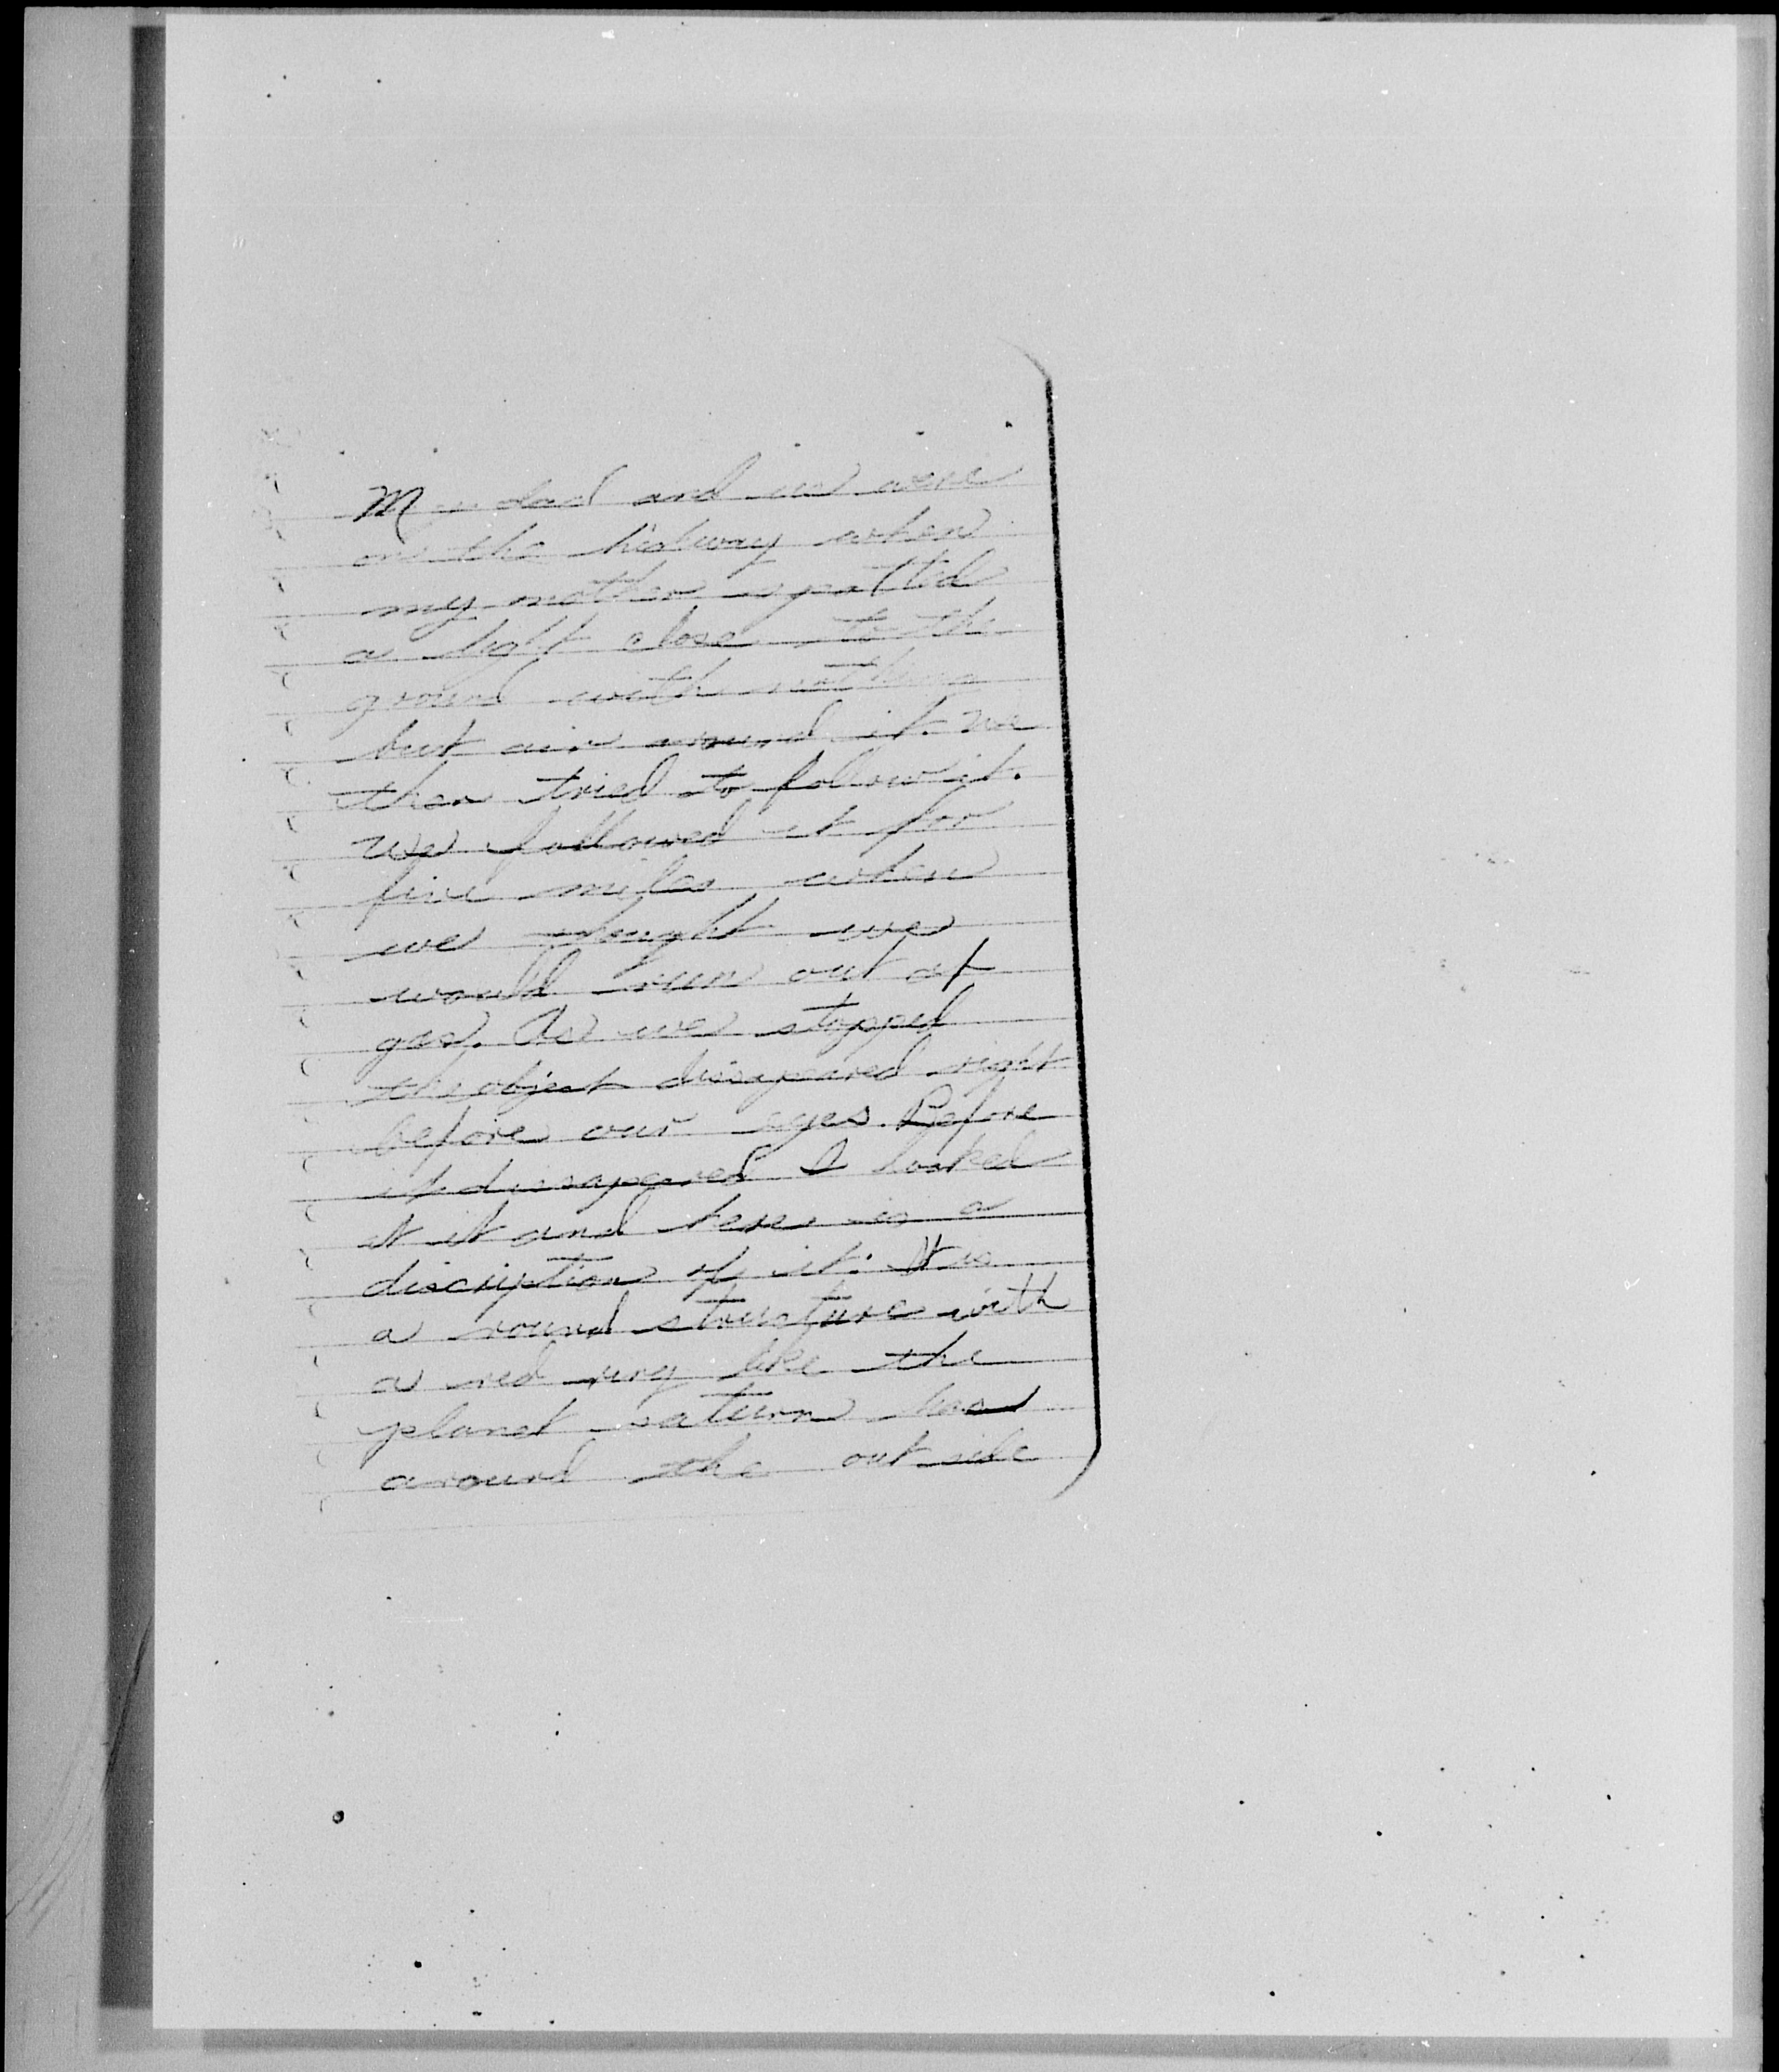 My dad and us were
on the higway when
my mother spotted
a light close to the
ground with nothing
but air around it. we
then tried to follow it.
we followed it for
five miles when
we thought we
would run out of
gas. As we stopped
the object disapeared right
before our eyes. Before
it disapered I looked
at it and here is a
discription of it: It is
a round structure with
a red ring like the
planet saturn has
around the outside